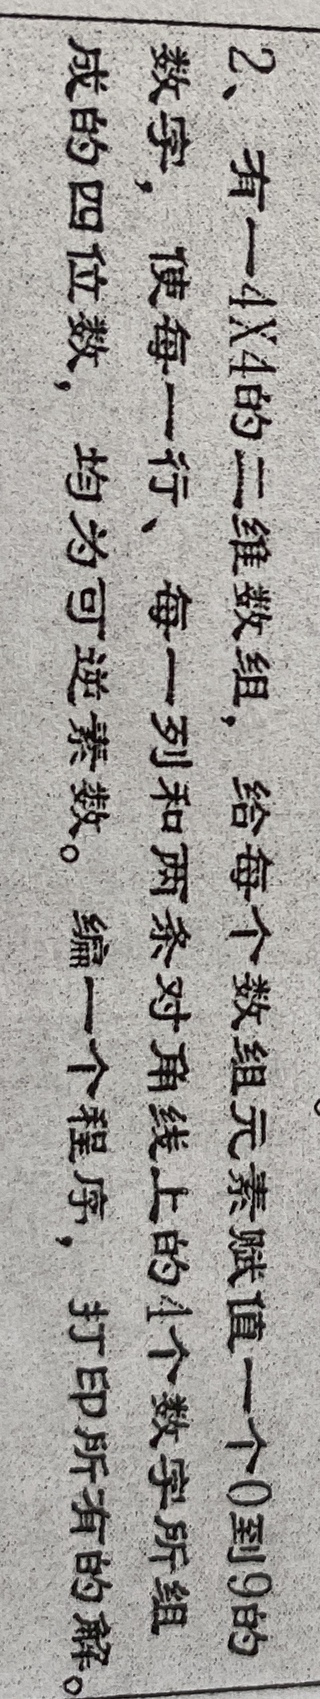 2、有一4X4的二维数组，给每个数组元素赋值一个0到9的
数字，使每一行、每一列和两条对角线上的4个数字所组
成的四位数，均为可逆素数。编一个程序，打印所有的解。